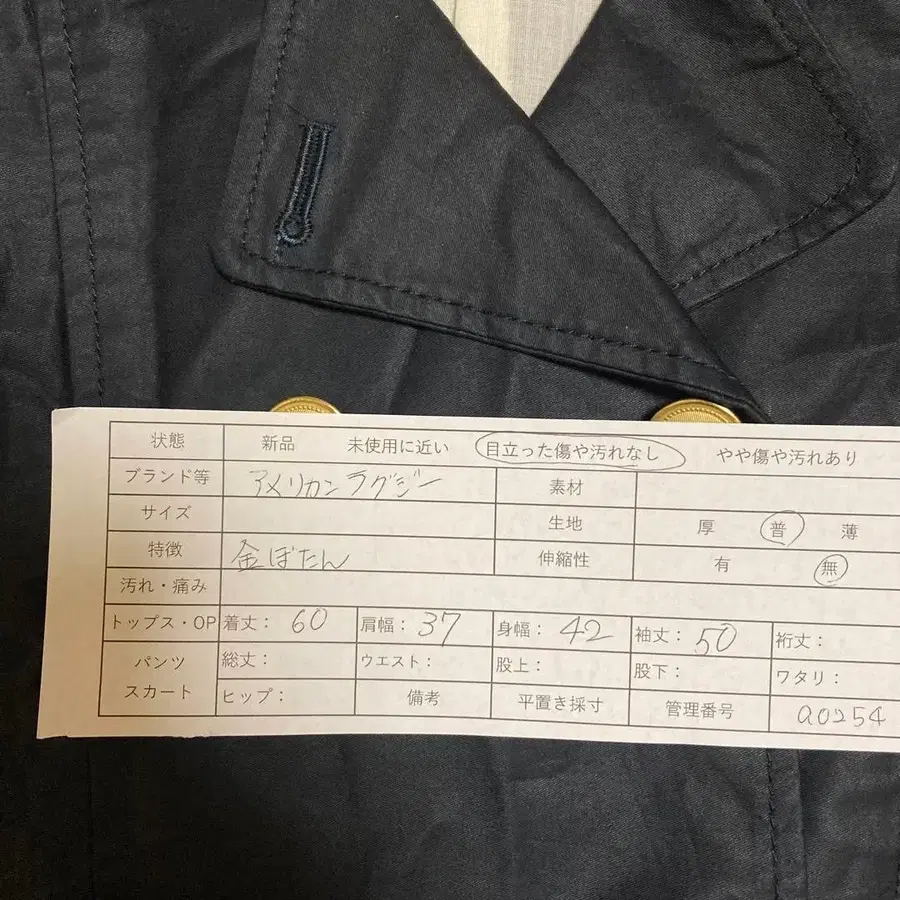 状態 新品 未使用に近い 目立った傷や汚れなし やや傷や汚れあり
ブランド等 アメリカンラグジー 素材
サイズ 生地 厚 普 薄
特徴 金ぼたん 伸縮性 有 無
汚れ・痛み
トップス・OP 着丈: 60 肩幅: 37 身幅: 42 袖丈: 50 裄丈:
パンツ スカート 総丈: ウエスト: 股上: 股下: ワタリ:
ヒップ: 備考 平置き採寸 管理番号 a0254